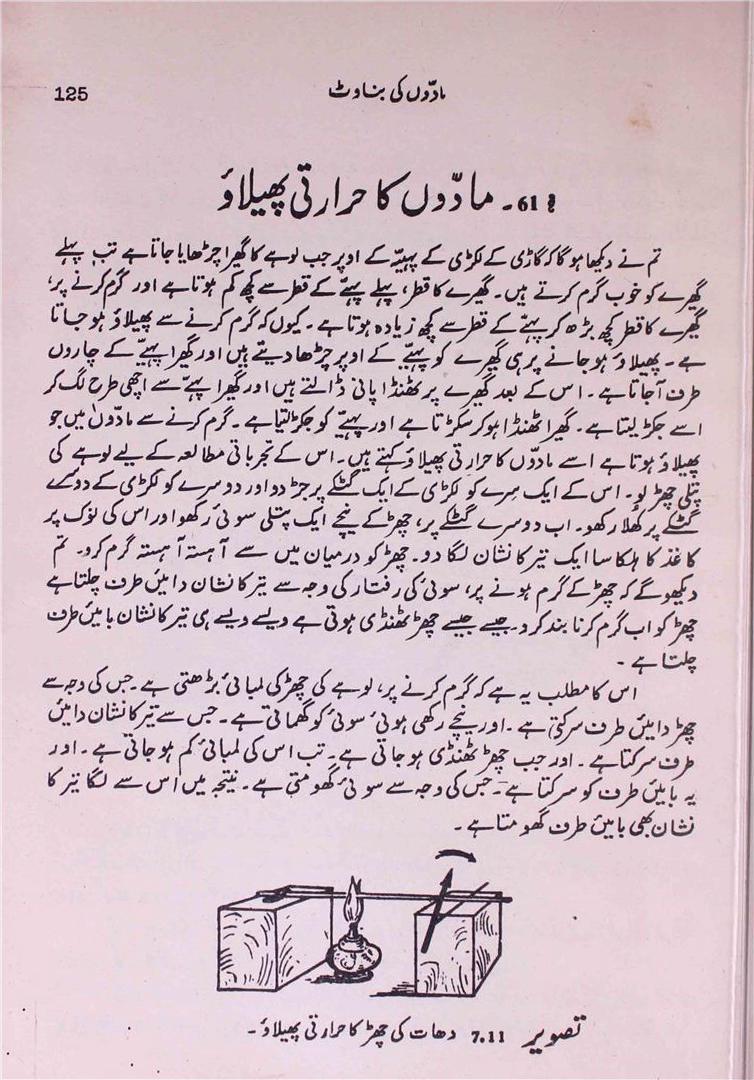 125
مادّوں کی بناوٹ
61۔ مادّوں کا حرارتی پھیلاؤ
تم نے دیکھا ہوگا کہ گاڑی کے لکڑی کے پہیّہ کے اوپر جب لوہے کا گھیرا چڑھایا جاتا ہے تب پہلے
گھیرے کو خوب گرم کرتے ہیں۔ گھیرے کا قطر، پہلے پہیّے کے قطر سے کچھ کم ہوتا ہے اور گرم کرنے پر،
گھیرے کا قطر کچھ بڑھ کر پہیّے کے قطر سے کچھ زیادہ ہوتا ہے۔ کیوں کہ گرم کرنے سے پھیلاؤ ہو جاتا
ہے۔ پھیلاؤ ہو جانے پر ہی گھیرے کو پہیّے کے اوپر چڑھا دیتے ہیں اور گھیرا پہیّے کے چاروں
طرف آجاتا ہے۔ اس کے بعد گھیرے پر ٹھنڈا پانی ڈالتے ہیں اور گھیرا پہیّے سے اچھی طرح لگ کر
اسے جکڑ لیتا ہے۔ گھیرا ٹھنڈا ہو کر سکڑتا ہے اور پہیّے کو جکڑ لیتا ہے۔ گرم کرنے سے مادّوں میں جو
پھیلاؤ ہوتا ہے اسے مادّوں کا حرارتی پھیلاؤ کہتے ہیں۔ اس کے تجرباتی مطالعہ کے لیے لوہے کی
پتلی چھڑ لو۔ اس کے ایک سرے کو لکڑی کے ایک گٹکے پر جڑ دو اور دوسرے کو لکڑی کے دوسرے
گٹکے پر کھلا رکھو۔ اب دوسرے گٹکے پر، چھڑ کے نیچے ایک پتلی سوئی رکھو اور اس کی نوک پر
کاغذ کا ہلکا سا ایک تیر کا نشان لگا دو۔ چھڑ کو درمیان میں سے آہستہ آہستہ گرم کرو۔ تم
دیکھو گے کہ چھڑ کے گرم ہونے پر، سوئی کی رفتار کی وجہ سے تیر کا نشان دائیں طرف چلتا ہے
چھڑ کو اب گرم کرنا بند کر دو۔ جیسے جیسے چھڑ ٹھنڈی ہوتی ہے ویسے ویسے ہی تیر کا نشان بائیں طرف
چلتا ہے۔
اس کا مطلب یہ ہے کہ گرم کرنے پر، لوہے کی چھڑ کی لمبائی بڑھتی ہے۔ جس کی وجہ سے
چھڑ دائیں طرف سرکتی ہے۔ اور نیچے رکھی ہوئی سوئی کو گھماتی ہے۔ جس سے تیر کا نشان دائیں
طرف سرکتا ہے۔ اور جب چھڑ ٹھنڈی ہو جاتی ہے۔ تب اس کی لمبائی کم ہو جاتی ہے۔ اور
یہ بائیں طرف کو سرکتا ہے۔ جس کی وجہ سے سوئی گھومتی ہے۔ نتیجہ میں اس سے لگا تیر کا
نشان بھی بائیں طرف گھومتا ہے۔
تصویر 7.11 دھات کی چھڑ کا حرارتی پھیلاؤ۔